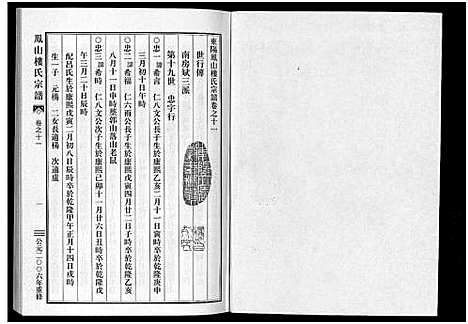 東陽鳳山樓氏宗譜卷之十一
世行傳
南房斌三派
第十九世 忠字行
忠一 諱希言 仁八文公長子生於康熙乙亥二月十一日卒於乾隆庚申
三月初十日午時
忠二 諱希福 仁六南公長子生於康熙戊寅四月廿二日卒於乾隆乙亥
八月十一日申時墓郭山落山老鼠
忠三 諱希時 仁八文公次子生於康熙己卯十一月廿六日丑時卒於乾隆戊
午三月二十日辰時
配呂氏生於康熙戊寅二月初八日辰時卒於乾隆甲午正月十四日戌時
生一子 元楊 二女長適楊 次適盧
鳳山樓氏宗譜
卷之十一
一
公元二〇〇六年重修